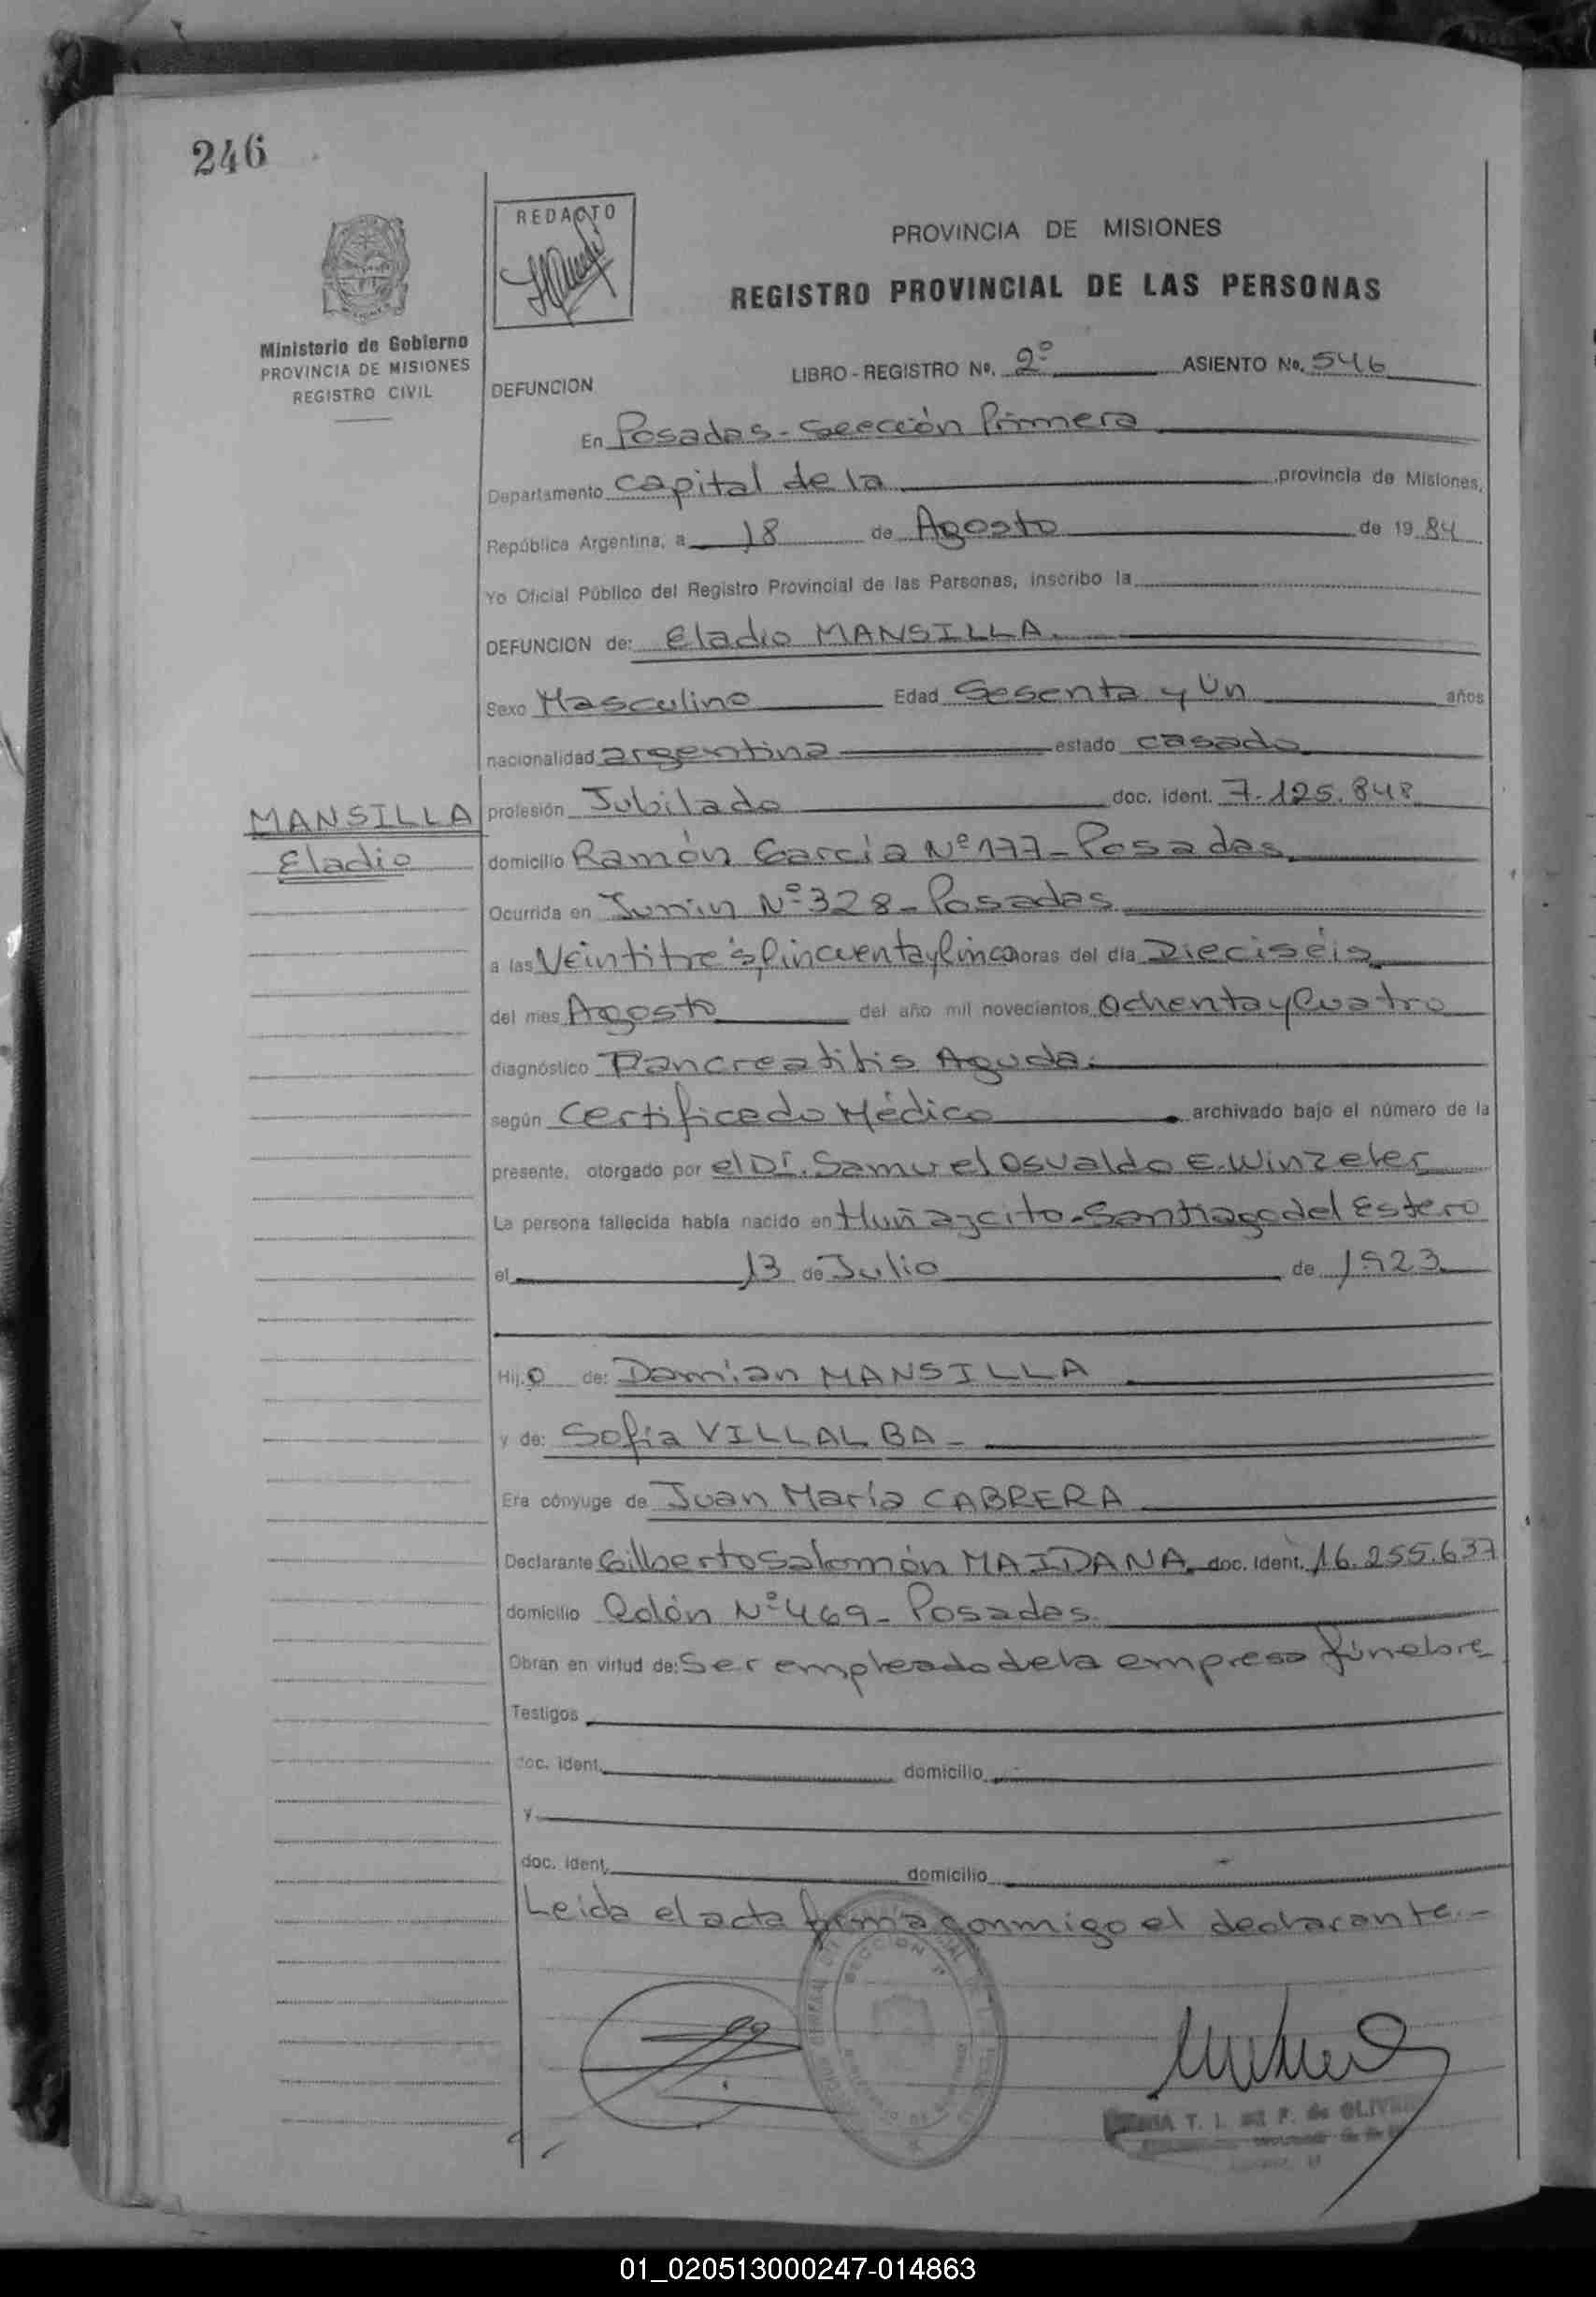 246
REDACTO
PROVINCIA DE MISIONES
REGISTRO PROVINCIAL DE LAS PERSONAS
Ministerio de Gobierno
PROVINCIA DE MISIONES
REGISTRO CIVIL
DEFUNCION
LIBRO - REGISTRO No. 2º ASIENTO No. 546
En Posadas - Sección Primera
Departamento Capital de la provincia de Misiones,
República Argentina, a 18 de Agosto de 1984
Yo Oficial Público del Registro Provincial de las Personas, inscribo la
DEFUNCION de: Eladio MANSILLA.
Sexo Masculino Edad Sesenta y Un años
nacionalidad argentina estado casado
MANSILLA
Eladio
profesión Jubilado doc. ident. 7.125.848
domicilio Ramón García Nº 177 - Posadas.
Ocurrida en Junín Nº 328 - Posadas
a las Veintitrés, Cincuenta y Cinco horas del día Dieciséis
del mes Agosto del año mil novecientos Ochenta y Cuatro
diagnóstico Pancreatitis Aguda.
según Certificado Médico archivado bajo el número de la
presente, otorgado por el Dr. Samuel Osvaldo E. Winzeler
La persona fallecida había nacido en Huñajcito - Santiago del Estero
el 13 de Julio de 1923
Hijo de: Damian MANSILLA
y de: Sofía VILLALBA -
Era cónyuge de Juan María CABRERA
Declarante Gilberto Salomón MAIDANA. doc. ident. 16.255.637
domicilio Colón Nº 469 - Posadas.
Obran en virtud de: Ser empleado de la empresa fúnebre
Testigos
doc. ident. domicilio
y
doc. ident. domicilio
Leida el acta firma conmigo el declarante. -
SECCION 1ª
T. I. de P. de OLIV
01_020513000247-014863